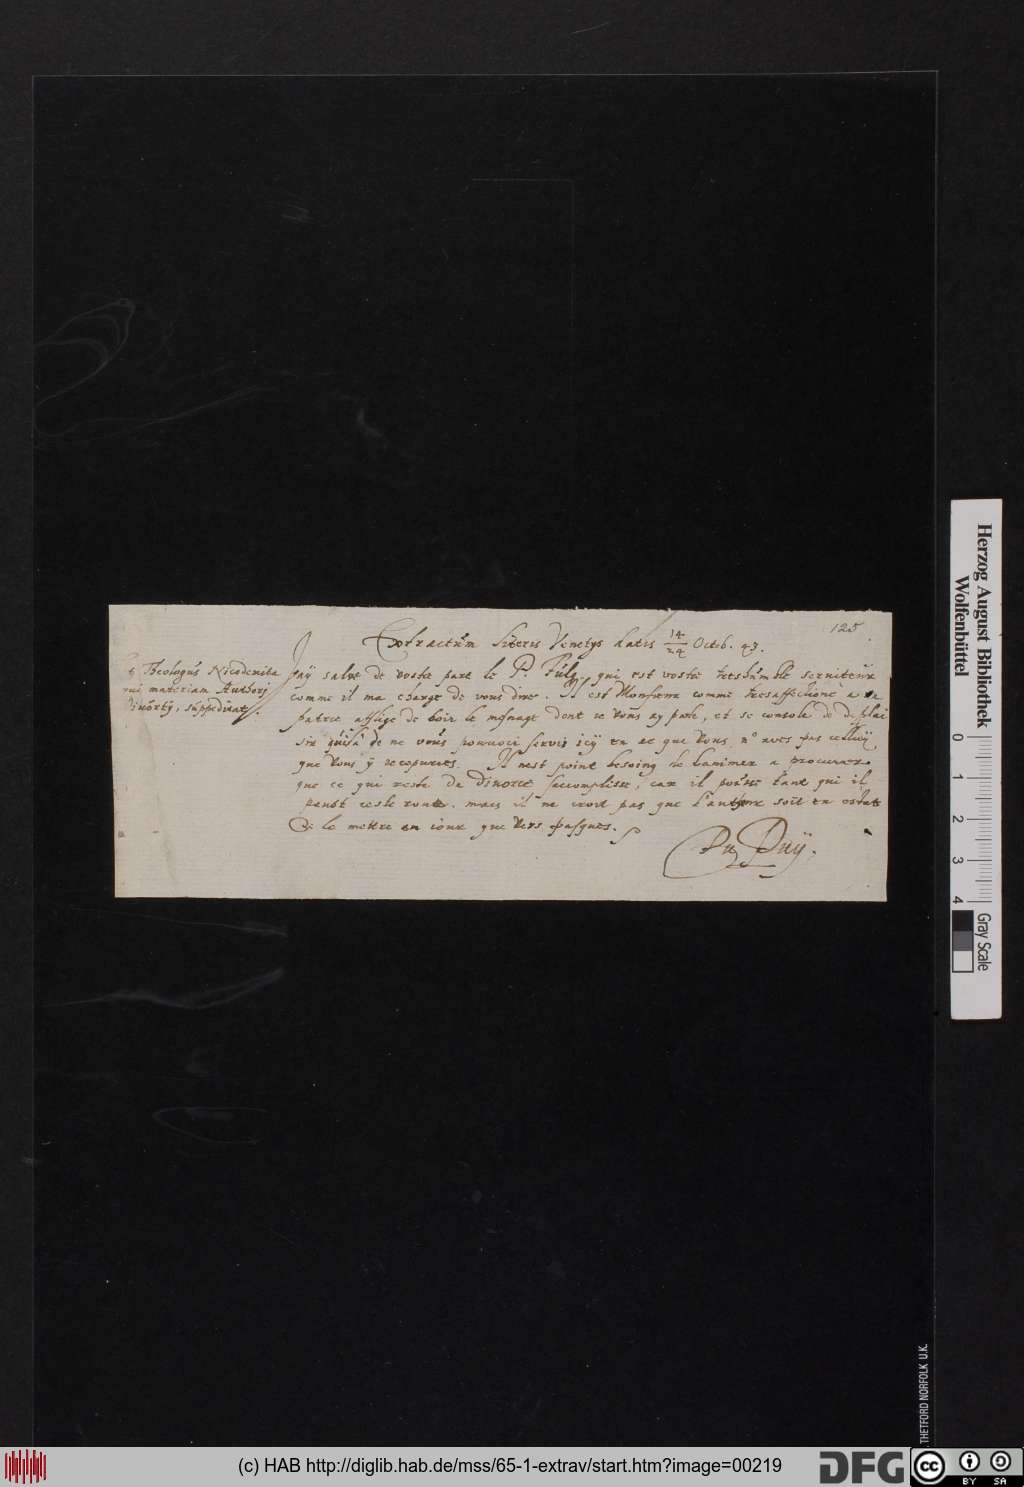 125
Extractum literis Venetys datis 14/24 Octob. 43.
Theologus Nicodemita
qui materiam Authori
Divorty, suppeditat.
Jaÿ salue de vostre part le P. Fulg. qui est vostre treshumble seruiteur
comme il ma charge de vous dire. Il est Monsieur comme tresaffectione a sa
patrie afflige de voir le mesnage dont ie vous aÿ parle, et se console de desplai
sir de ne vous pouuoir seruir icÿ en ce que vous n'aues pas
que vous ÿ Il nest point besoing de lanimer a procurer
que ce qui reste de Divorce saccomplisse, car il tant qui il
peust ceste route. mais il ne croit pas que l'autheur soit en estat
de le mettre en iour que vers pasques.
Du Puÿ.
Herzog August Bibliothek
Wolfenbüttel
0 1 2 3 4
Gray Scale
THETFORD NORFOLK U.K.
(c) HAB http://diglib.hab.de/mss/65-1-extrav/start.htm?image=00219
DFG
cc
BY SA